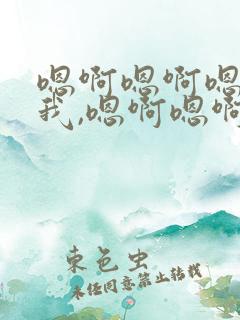 嗯啊嗯啊嗯
我,嗯啊嗯啊
束色虫
未经同意禁止转载